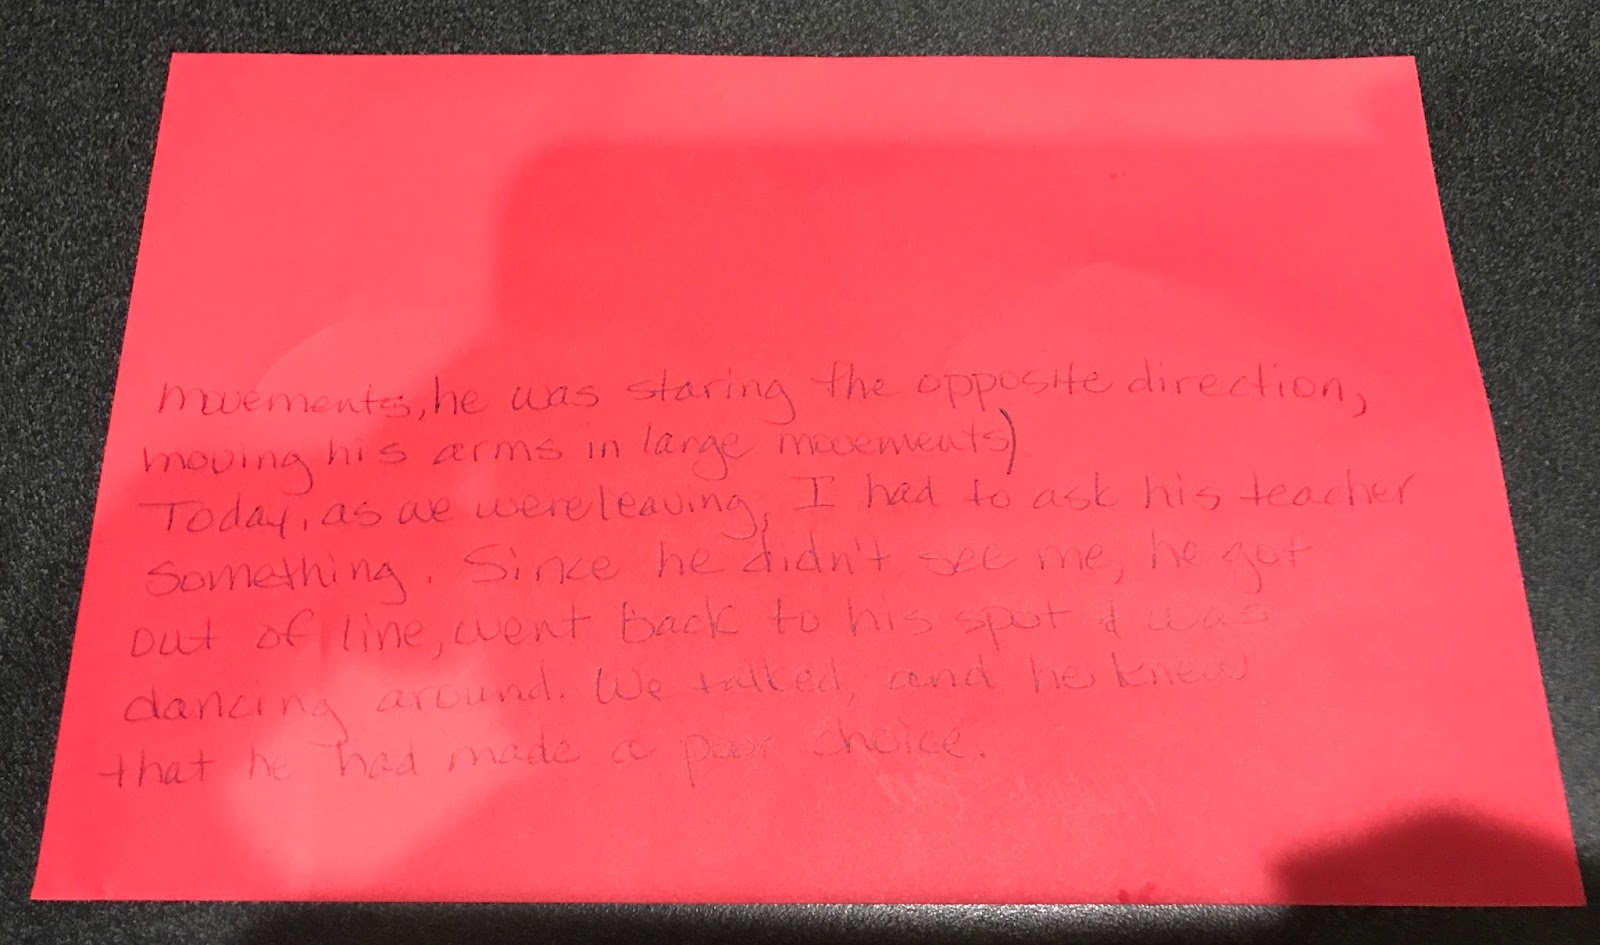 movements, he was staring the opposite direction,
moving his arms in large movements)
Today, as we were leaving, I had to ask his teacher
something. Since he didn't see me, he got
out of line, went back to his spot & was
dancing around. We talked, and he knew
that he had made a poor choice.